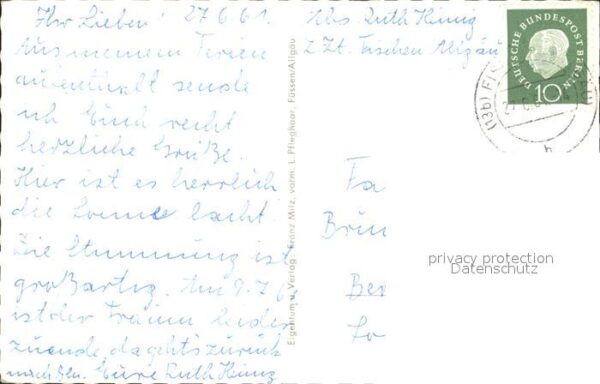 Ihr Lieben! 27.6.61.
Aus meinem Ferien
aufenthalt sende
ich Euch recht
herzliche Grüße.
Hier ist es herrlich
die Sonne lacht.
Die Stimmung ist
großartig. Am 9.7.6
ist der Traum leider
zuende, da gehts zurück
nach Eure Ruth Heinz
Abs. Ruth Heinz
z. Zt. Fischen Allgäu
DEUTSCHE BUNDESPOST BERLIN
10
(13b)
Eigentum u. Verlag Franz Milz, vorm. L. Pfleghaar, Füssen/Allgäu
Fa
Brün
Ber
privacy protection
Datenschutz